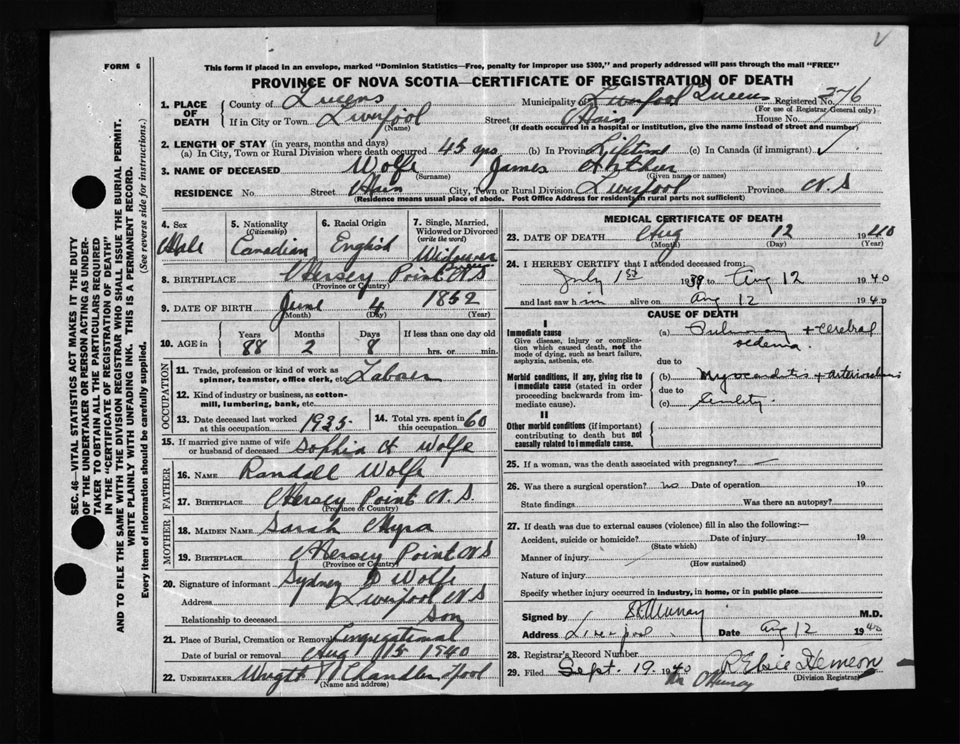 FORM 6
This form if placed in an envelope, marked "Dominion Statistics—Free, penalty for improper use $300," and properly addressed will pass through the mail "FREE"
PROVINCE OF NOVA SCOTIA—CERTIFICATE OF REGISTRATION OF DEATH
1. PLACE OF DEATH County of Queens Municipality of Liverpool Queens Registered No. 376
(For use of Registrar General only)
If in City or Town Liverpool Street Main House No.
(Name) (If death occurred in a hospital or institution, give the name instead of street and number)
2. LENGTH OF STAY (in years, months and days)
(a) In City, Town or Rural Division where death occurred 45 yrs (b) In Province Lifetime (c) In Canada (if immigrant)
3. NAME OF DECEASED Wolfe James Arthur
(Surname) (Given name or names)
RESIDENCE No. Street Main City, Town or Rural Division Liverpool Province N.S
(Residence means usual place of abode. Post Office Address for residents in rural parts not sufficient)
4. Sex Male
5. Nationality (Citizenship) Canadian
6. Racial Origin English
7. Single, Married, Widowed or Divorced (write the word) Widower
8. BIRTHPLACE Mersey Point N S
(Province or Country)
9. DATE OF BIRTH June 4 1852
(Month) (Day) (Year)
10. AGE in Years 88 Months 2 Days 8 If less than one day old hrs. or min.
OCCUPATION
11. Trade, profession or kind of work as spinner, teamster, office clerk, etc. Laborer
12. Kind of industry or business, as cotton-mill, lumbering, bank, etc.
13. Date deceased last worked at this occupation 1935 14. Total yrs. spent in this occupation 60
15. If married give name of wife or husband of deceased Sophia A Wolfe
FATHER
16. NAME Randall Wolfe
17. BIRTHPLACE Mersey Point N.S
(Province or Country)
MOTHER
18. MAIDEN NAME Sarah Myra
19. BIRTHPLACE Mersey Point N S
(Province or Country)
20. Signature of informant Sydney Wolfe
Address Liverpool N S
Relationship to deceased Son
21. Place of Burial, Cremation or Removal Congregational
Date of burial or removal Aug 15 1940
22. UNDERTAKER Wright Chandler
(Name and address)
MEDICAL CERTIFICATE OF DEATH
23. DATE OF DEATH Aug 12 1940
(Month) (Day) (Year)
24. I HEREBY CERTIFY that I attended deceased from:
July 1st 1939 to Aug 12 1940
and last saw him alive on Aug 12 1940
CAUSE OF DEATH
I
Immediate cause
Give disease, injury or complication which caused death, not the mode of dying, such as heart failure, asphyxia, asthenia, etc.
(a) Pulmonary + cerebral
oedema.
due to
Morbid conditions, if any, giving rise to immediate cause (stated in order proceeding backwards from immediate cause).
(b) Myocarditis +
due to
(c) Senility
II
Other morbid conditions (if important) contributing to death but not causally related to immediate cause.
25. If a woman, was the death associated with pregnancy? —
26. Was there a surgical operation? no Date of operation 19
State findings Was there an autopsy?
27. If death was due to external causes (violence) fill in also the following:—
Accident, suicide or homicide? Date of injury 19
(State which)
Manner of injury
(How sustained)
Nature of injury
Specify whether injury occurred in industry, in home, or in public place
Signed by Murray M.D.
Address Liverpool Date Aug 12 1940
28. Registrar's Record Number
29. Filed Sept. 19 1940 R Elsie Hemeon
(Division Registrar)
SEC. 46—VITAL STATISTICS ACT MAKES IT THE DUTY
OF THE UNDERTAKER OR PERSON ACTING AS UNDER-
TAKER TO OBTAIN ALL THE PARTICULARS REQUIRED
IN THE "CERTIFICATE OF REGISTRATION OF DEATH"
AND TO FILE THE SAME WITH THE DIVISION REGISTRAR WHO SHALL ISSUE THE BURIAL PERMIT.
WRITE PLAINLY WITH UNFADING INK. THIS IS A PERMANENT RECORD.
Every item of information should be carefully supplied. (See reverse side for instructions.)